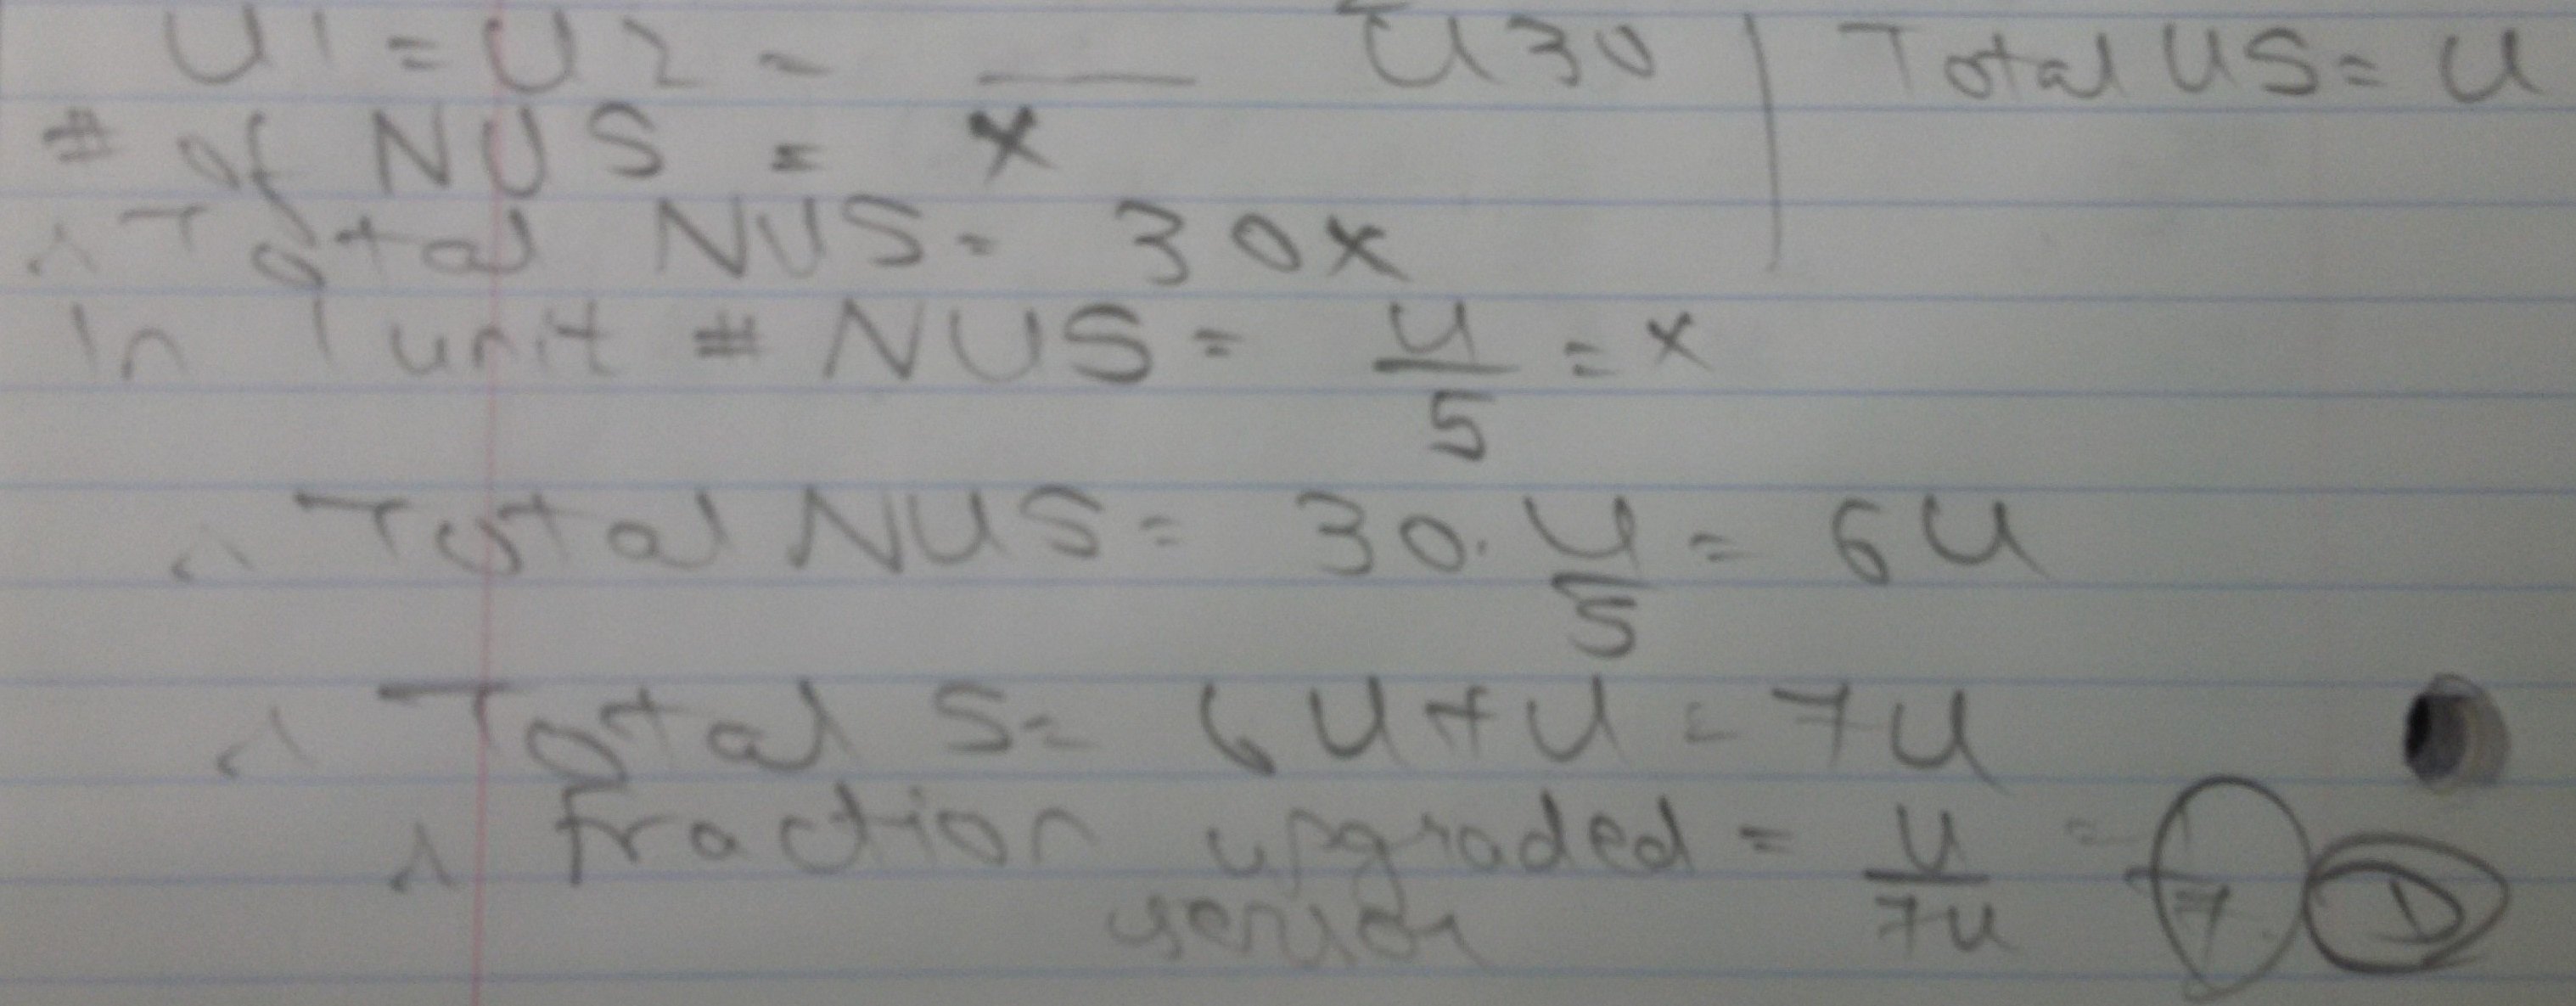 U1 = U2 - ___ U30 | Total US = U
# of NUS = x
∴ Total NUS = 30x
In 1 unit # NUS = U/5 = x
∴ Total NUS = 30 . U/5 = 6U
∴ Total S = 6U + U = 7U
∴ fraction upgraded = U/7U = 1/7 D